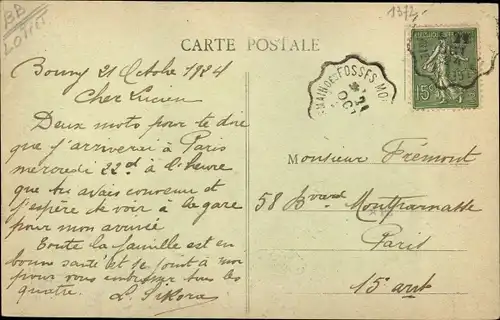 BP
LOTIST
1373
CARTE POSTALE
21 Octobre 1924
Cher Lucien
Deux mots pour te dire
que j'arriverai à Paris
mercredi 22 à l'heure
que tu avais convenu et
j'espère te voir à la gare
pour mon arrivée
Toute la famille est en
bonne santé et se joint à moi
pour vous embrasser tous les
quatre.
L. Sikora
MAIN-DES-FOSSES
OCT
15c
Monsieur Frémont
58 Bvard Montparnasse
Paris
15e arrt